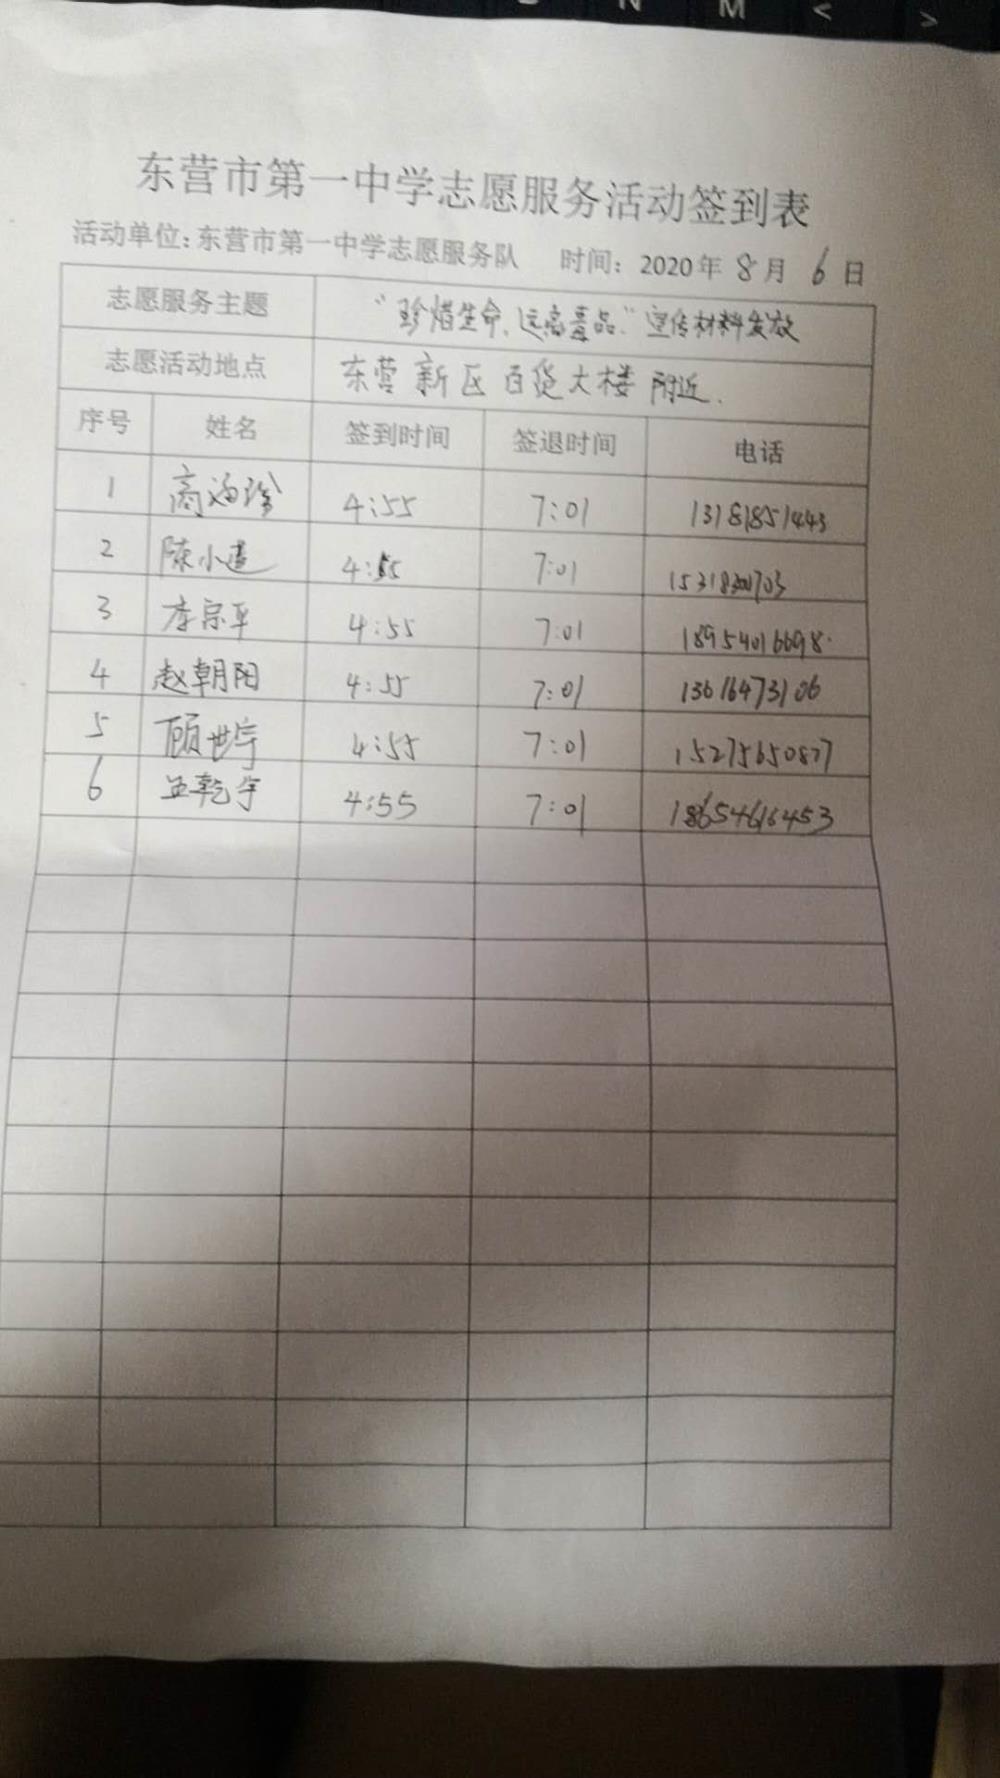 N M < >
东营市第一中学志愿服务活动签到表
活动单位:东营市第一中学志愿服务队 时间:2020年8月6日
志愿服务主题 “珍惜生命、远离毒品.”宣传材料发放
志愿活动地点 东营新区百货大楼附近.
序号 姓名 签到时间 签退时间 电话
1 4:55 7:01 13181851443
2 陈小道 4:55 7:01
3 李宗平 4:55 7:01 18954016698
4 赵朝阳 4:55 7:01 13616473106
5 顾世宇 4:55 7:01 15275650877
6 孟乾宇 4:55 7:01 18654616453